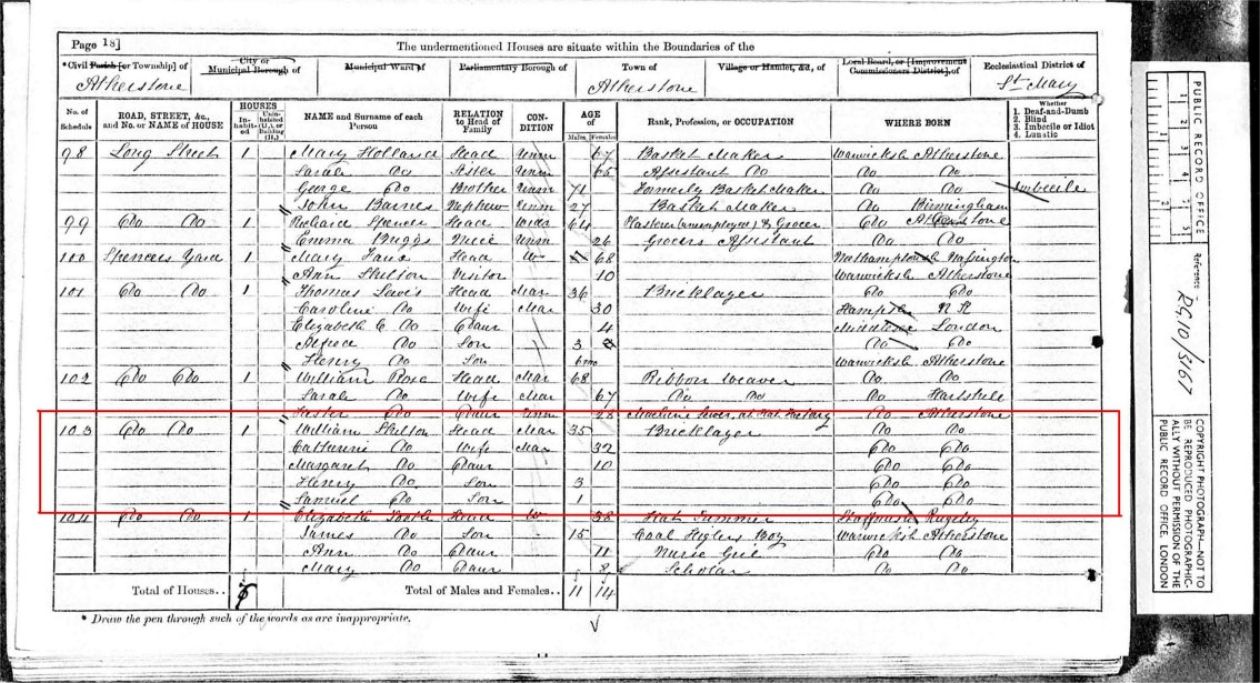 Page 18]
The undermentioned Houses are situate within the Boundaries of the
*Civil Parish [or Township] of
City or Municipal Borough of
Municipal Ward of
Parliamentary Borough of
Town of
Village or Hamlet, &c., of
Local Board, or [Improvement Commissioners District], of
Ecclesiastical District of
Atherstone Atherstone St Mary
No. of Schedule
ROAD, STREET, &c., and No. or NAME of HOUSE
HOUSES
Inhabited
Uninhabited (U.), or Building (B.)
NAME and Surname of each Person
RELATION to Head of Family
CONDITION
AGE of
Males Females
Rank, Profession, or OCCUPATION
WHERE BORN
Whether
1. Deaf-and-Dumb
2. Blind
3. Imbecile or Idiot
4. Lunatic
98 Long Street 1 Mary Holland Head Unm 67 Basket Maker Warwicksh Atherstone
Sarah Do Sister Unm 65 Assistant Do Do Do
George Do Brother Unm 71 Formerly Basket Maker Do Do Imbecile
John Barnes Nephew Unm 27 Basket Maker Do Birmingham
99 Do Do 1 Richard Spencer Head Widr 64 (unemployed) & Grocer Do Atherstone
Emma Briggs Niece Unm 26 Grocers Assistant Do Do
100 Spencers Yard 1 Mary Head W 68 Nassington
Ann Skelton Visitor 10 Warwicksh Atherstone
101 Do Do 1 Thomas Lewis Head Mar 36 Bricklayer Do Do
Caroline Do Wife Mar 30
Elizabeth E Do Daur 4 London
Alfred Do Son 3 Do Do
Henry Do Son 6mo Warwicksh Atherstone
102 Do Do 1 William Rose Head Mar 68 Ribbon Weaver Do Do
Sarah Do Wife Mar 67 Do Do Do Hartshill
Do Daur Unm 28 Machine at Hat Factory Do Atherstone
103 Do Do 1 William Skelton Head Mar 35 Bricklayer Do Do
Catherine Do Wife Mar 32 Do Do
Margaret Do Daur 10 Do Do
Henry Do Son 3 Do Do
Samuel Do Son 1 Do Do
104 Do Do 1 Elizabeth Head W 38 Hat Trimmer Staffordsh Rugeley
James Do Son 15 Coal Boy Warwicksh Atherstone
Ann Do Daur 11 Nurse Girl Do Do
Mary Do Daur 8 Scholar Do Do
Total of Houses.. Total of Males and Females.. 11 14
* Draw the pen through such of the words as are inappropriate.
PUBLIC RECORD OFFICE
Reference :-
RG10/3167
COPYRIGHT PHOTOGRAPH—NOT TO BE REPRODUCED PHOTOGRAPHICALLY WITHOUT PERMISSION OF THE PUBLIC RECORD OFFICE, LONDON